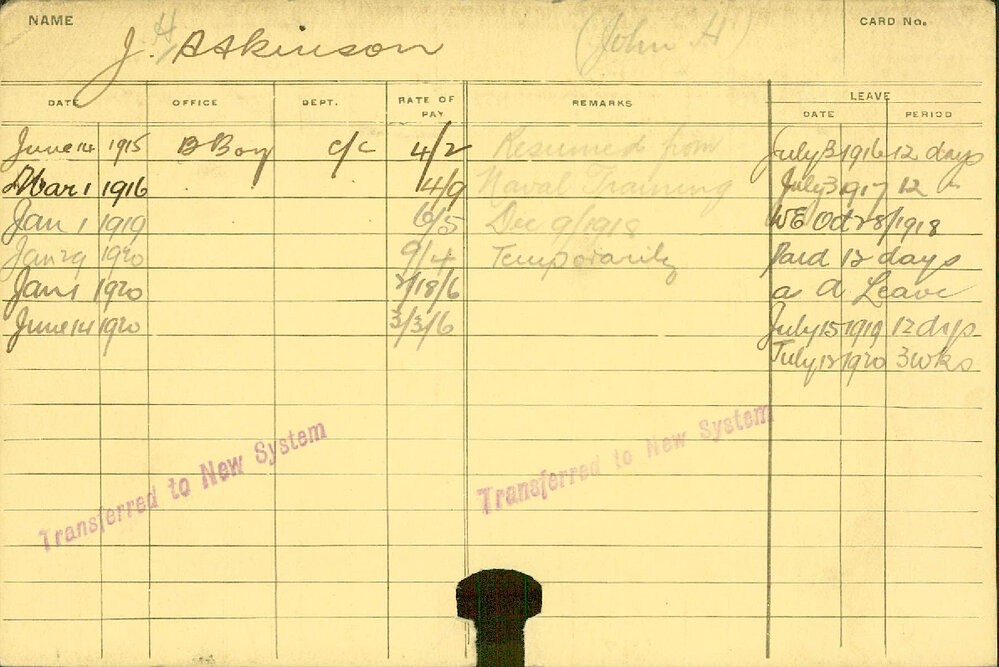 NAME
J. H Atkinson (John H)
CARD No.
DATE OFFICE DEPT. RATE OF PAY REMARKS LEAVE
DATE PERIOD
June 14 1915 B Boy C/C 4/2 Resumed from July 3 1916 12 days
Mar 1 1916 4/9 Naval Training July 3 1917 12 "
Jan 1 1919 6/5 Dec 9/1918 WE Oct 28/1918
Jan 29 1920 9/4 Temporarily Paid 12 days
Jan 1 1920 2/18/6 as A Leave
June 14 1920 3/3/6 July 15 1919 12 days
July 12 1920 3 wks
Transferred to New System
Transferred to New System